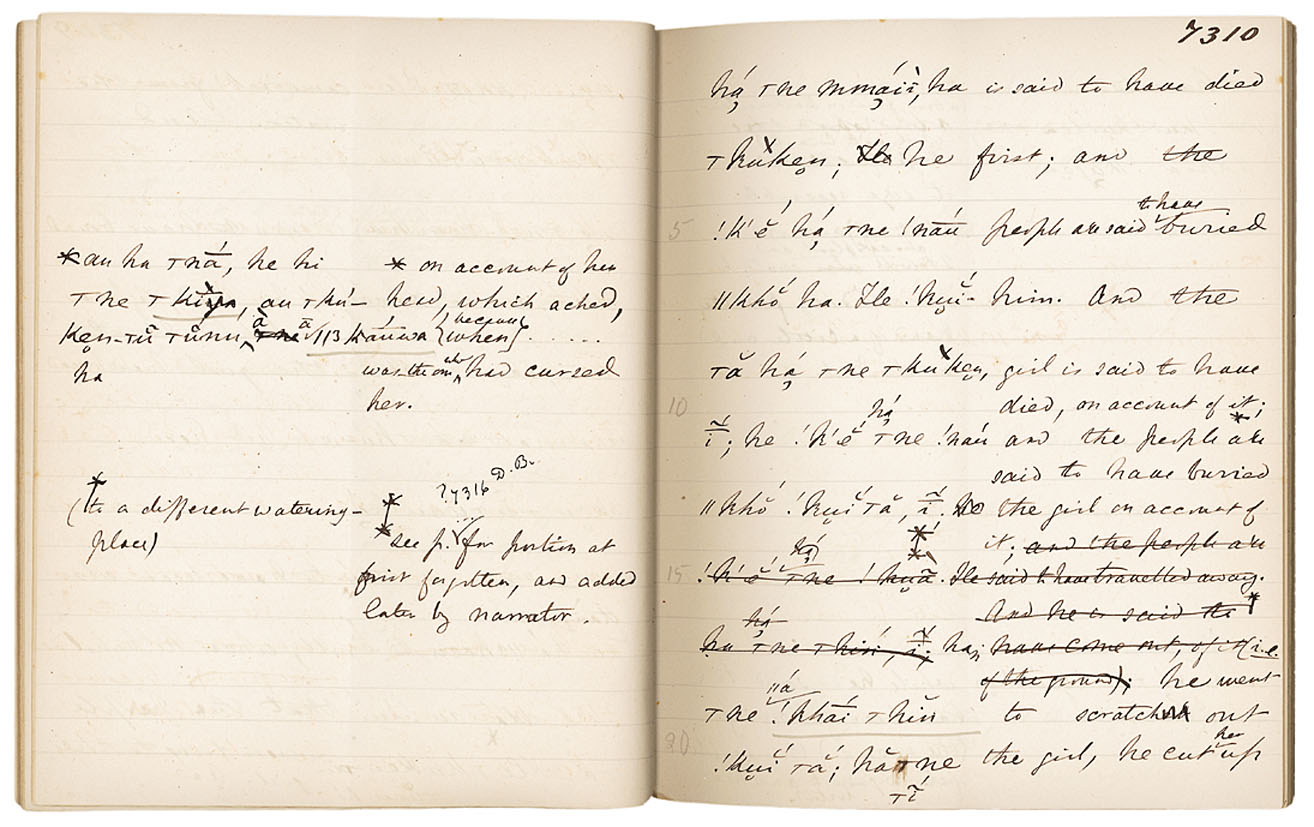 *au ha ꞇná, he hi
ꞇne , au ꞇkú-
ken-ꞇŭ ꞇŭnn, ā ā //3 káuwa
ha
* on account of her
head, which ached,
{when} because ......
was the one who had cursed
her.
(to a different watering-
place)
?7316 D. B.
see p. for portion at
first forgotten, and added
later by narrator.
7310
há ꞇne mmáiĩ, ha is said to have died
ꞇkuken; he first; and the
5
!k'ĕ́ há ꞇne !náu people are said to have buried
//khŏ́ ha. He !kuĭ́- him. And the
ꞇă há ꞇne ꞇkuken, girl is said to have
10
died, on account of it; *
ĩ; he !k'ĕ́ há ꞇne !náu and the people are
said to have buried
//khŏ́ !kuĭ́ ꞇă, ĩ. the girl on account of
it; and the people are
15
!k'ĕ́ há ꞇne !kuā. He said to have travelled away.
And he is said to
ha há ꞇne ꞇhin, ĩ; ha, have come out, of it (i.e.
of the ground); he went
ꞇne //á !khāi ꞇhin to scratch out
20
!kuĭ́ ꞇá; hă ꞇne the girl, he cut her up
ꞇĭ́